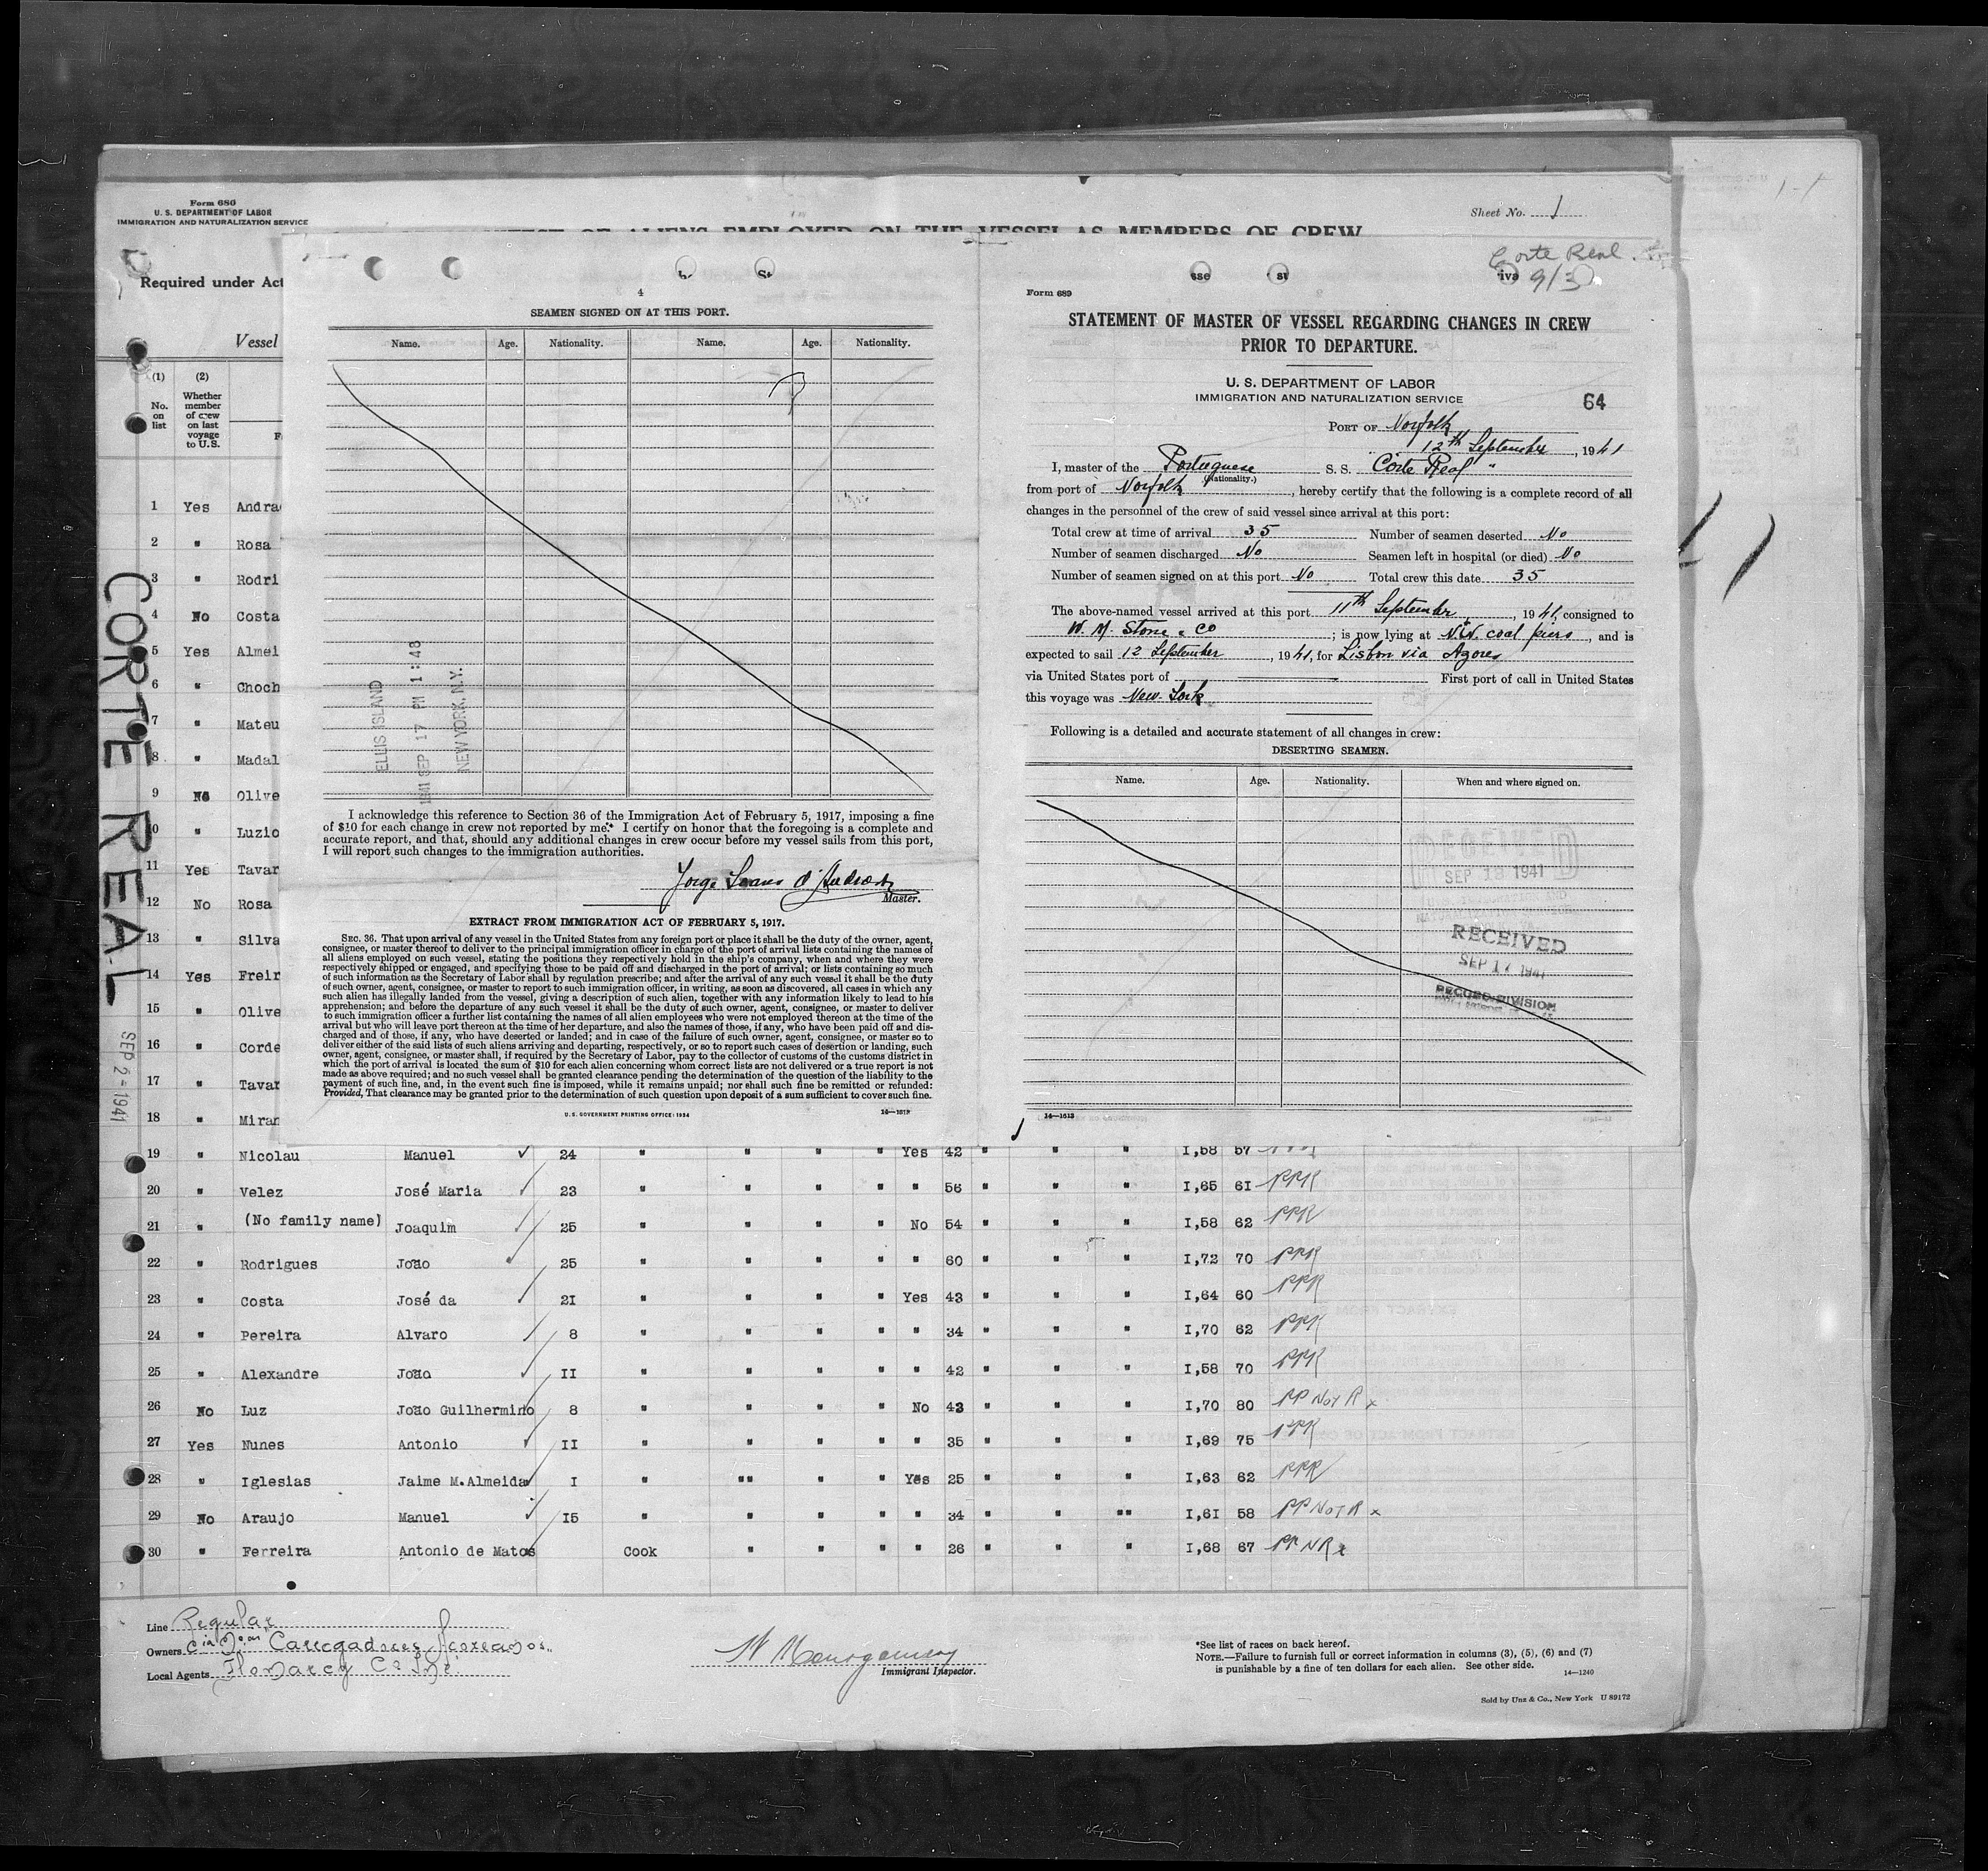 Form 680
U. S. DEPARTMENT OF LABOR
IMMIGRATION AND NATURALIZATION SERVICE
Sheet No. 1
OF ALIENS EMPLOYED ON THE VESSEL AS MEMBERS OF CREW
Required under Act
Vessel
(1) (2)
No. on list
Whether member of crew on last voyage to U.S.
1 Yes Andra
2 " Rosa
3 " Rodri
4 No Costa
5 Yes Almei
6 " Choch
7 " Mateu
8 " Madal
9 No Olive
10 " Luzio
11 Yes Tavar
12 No Rosa
13 " Silva
14 Yes Freir
15 " Olive
16 " Corde
17 " Tavar
18 " Miran
CORTE REAL
SEP 2-1941
4
SEAMEN SIGNED ON AT THIS PORT.
Name. Age. Nationality. Name. Age. Nationality.
ELLIS ISLAND
1941 SEP 17 PM 1:48
NEW YORK, N.Y.
I acknowledge this reference to Section 36 of the Immigration Act of February 5, 1917, imposing a fine
of $10 for each change in crew not reported by me.* I certify on honor that the foregoing is a complete and
accurate report, and that, should any additional changes in crew occur before my vessel sails from this port,
I will report such changes to the immigration authorities.
Jorge
Master.
EXTRACT FROM IMMIGRATION ACT OF FEBRUARY 5, 1917.
SEC. 36. That upon arrival of any vessel in the United States from any foreign port or place it shall be the duty of the owner, agent,
consignee, or master thereof to deliver to the principal immigration officer in charge of the port of arrival lists containing the names of
all aliens employed on such vessel, stating the positions they respectively hold in the ship's company, when and where they were
respectively shipped or engaged, and specifying those to be paid off and discharged in the port of arrival; or lists containing so much
of such information as the Secretary of Labor shall by regulation prescribe; and after the arrival of any such vessel it shall be the duty
of such owner, agent, consignee, or master to report to such immigration officer, in writing, as soon as discovered, all cases in which any
such alien has illegally landed from the vessel, giving a description of such alien, together with any information likely to lead to his
apprehension; and before the departure of any such vessel it shall be the duty of such owner, agent, consignee, or master to deliver
to such immigration officer a further list containing the names of all alien employees who were not employed thereon at the time of the
arrival but who will leave port thereon at the time of her departure, and also the names of those, if any, who have been paid off and dis-
charged and of those, if any, who have deserted or landed; and in case of the failure of such owner, agent, consignee, or master so to
deliver either of the said lists of such aliens arriving and departing, respectively, or so to report such cases of desertion or landing, such
owner, agent, consignee, or master shall, if required by the Secretary of Labor, pay to the collector of customs of the customs district in
which the port of arrival is located the sum of $10 for each alien concerning whom correct lists are not delivered or a true report is not
made as above required; and no such vessel shall be granted clearance pending the determination of the question of the liability to the
payment of such fine, and, in the event such fine is imposed, while it remains unpaid; nor shall such fine be remitted or refunded:
Provided, That clearance may be granted prior to the determination of such question upon deposit of a sum sufficient to cover such fine.
U. S. GOVERNMENT PRINTING OFFICE: 1934 14—1613
Corte Real
9/3
Form 689
STATEMENT OF MASTER OF VESSEL REGARDING CHANGES IN CREW
PRIOR TO DEPARTURE.
U. S. DEPARTMENT OF LABOR
IMMIGRATION AND NATURALIZATION SERVICE
64
PORT OF Norfolk
12th September, 1941
I, master of the Portuguese S. S. Corte Real "
(Nationality.)
from port of Norfolk, hereby certify that the following is a complete record of all
changes in the personnel of the crew of said vessel since arrival at this port:
Total crew at time of arrival 35 Number of seamen deserted No
Number of seamen discharged No Seamen left in hospital (or died) No
Number of seamen signed on at this port No Total crew this date 35
The above-named vessel arrived at this port 11th September, 1941, consigned to
W. M. Stone & Co; is now lying at N.&W. coal piers, and is
expected to sail 12 September, 1941, for Lisbon via Azores
via United States port of First port of call in United States
this voyage was New York
Following is a detailed and accurate statement of all changes in crew:
DESERTING SEAMEN.
Name. Age. Nationality. When and where signed on.
RECEIVED
SEP 13 1941
RECEIVED
SEP 17 1941
RECORD DIVISION
14—1613
19 " Nicolau Manuel 24 " " " " Yes 42 " " " 1,58 57
20 " Velez José Maria 23 " " " " " 56 " " " 1,65 61 PPR
21 " (No family name) Joaquim 25 " " " " No 54 " " " 1,58 62 PPR
22 " Rodrigues João 25 " " " " " 60 " " " 1,72 70 PPR
23 " Costa José da 21 " " " " Yes 43 " " " 1,64 60 PPR
24 " Pereira Alvaro 8 " " " " " 34 " " " 1,70 62 PPR
25 " Alexandre João II " " " " " 42 " " " 1,58 70 PPR
26 No Luz João Guilhermino 8 " " " " No 43 " " " 1,70 80 PP Not R x
27 Yes Nunes Antonio II " " " " " 35 " " " 1,69 75 PPR
28 " Iglesias Jaime M.Almeida I " "" " " Yes 25 " " " 1,63 62 PPR
29 No Araujo Manuel I5 " " " " " 34 " " "" 1,61 58 PP Not R x
30 " Ferreira Antonio de Matos Cook " " " " 26 " " " 1,68 67 PP NR x
Line Regular
Owners Carregadores
Local Agents
Immigrant Inspector.
*See list of races on back hereof.
NOTE.—Failure to furnish full or correct information in columns (3), (5), (6) and (7)
is punishable by a fine of ten dollars for each alien. See other side.
14—1240
Sold by Unz & Co., New York U 89172